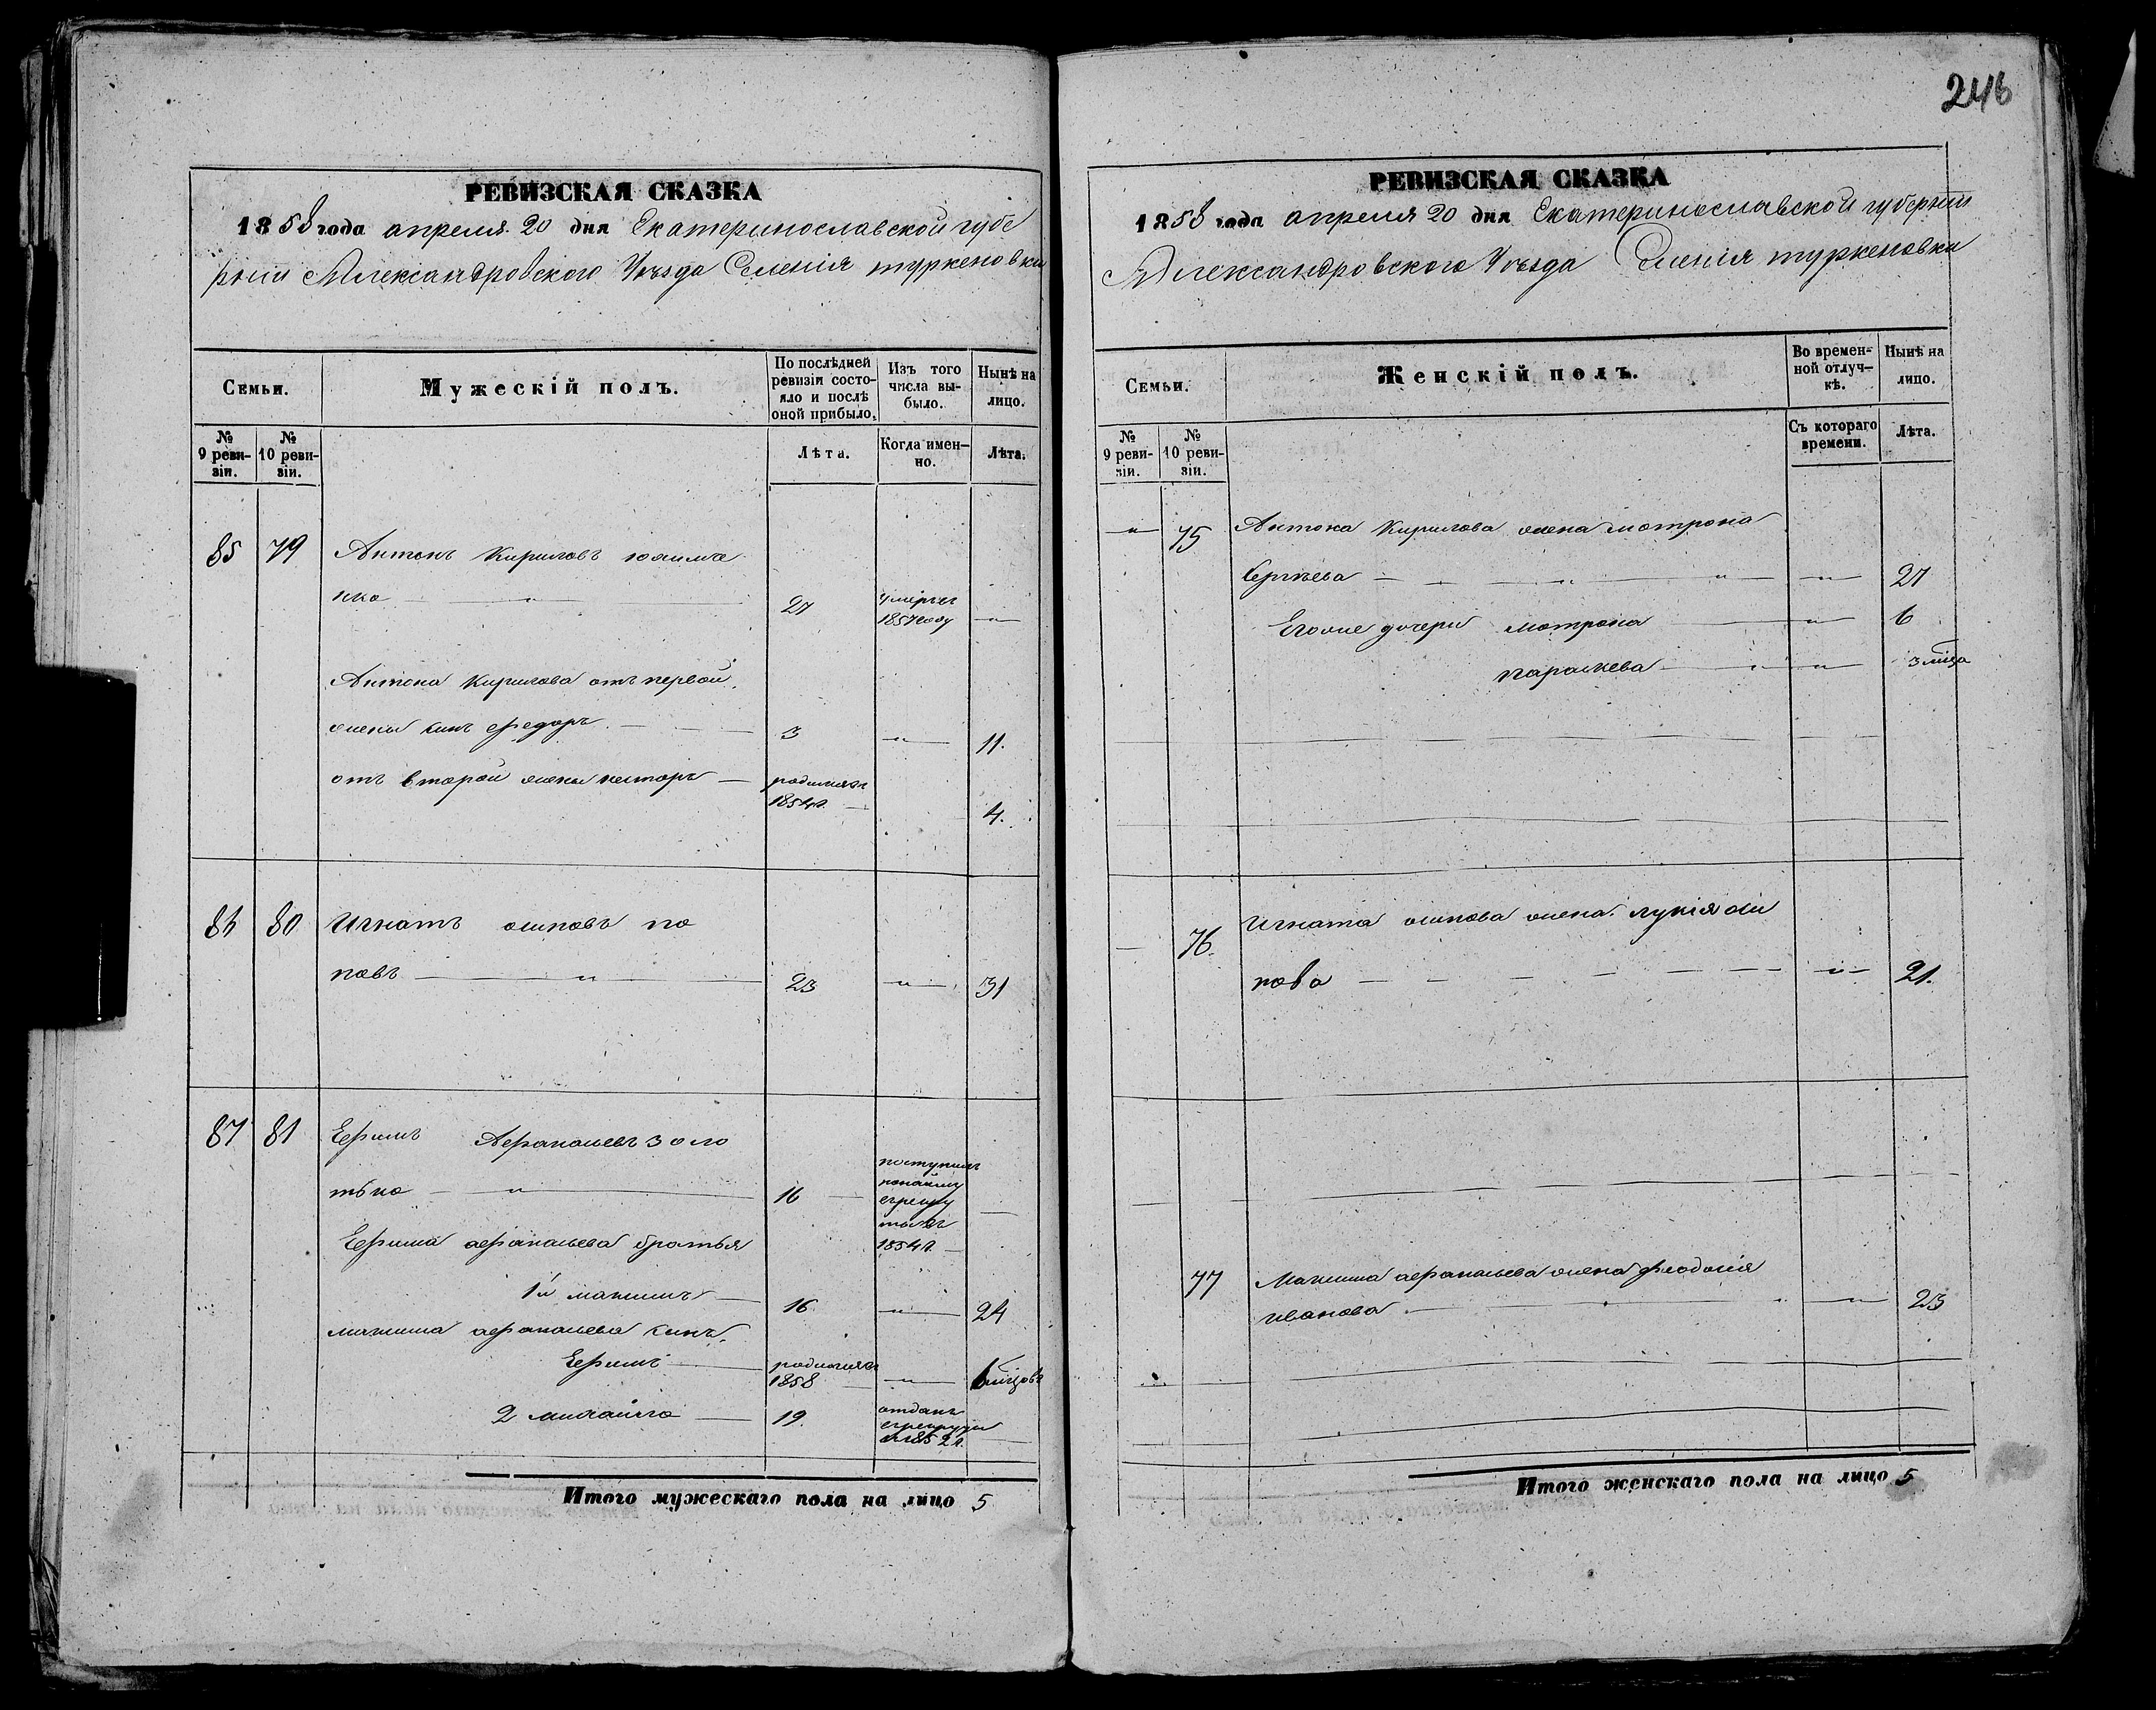 246
РЕВИЗСКАЯ СКАЗКА
1858 года апреля 20 дня Екатеринославской губе
рнии Александровского Уѣзда Селенія туркеновки
Семьи.
Мужескій полъ.
По послѣдней ревизіи состо-яло и послѣ оной прибыло.
Изъ того числа вы-было.
Нынѣ на лицо.
№ 9 реви-зіи.
№ 10 реви-зіи.
Лѣта.
Когда имен-но.
Лѣта.
85 79 Антонъ Кириловъ
нко — „ — 27 умеръ 1857 году — „
Антона Кирилова отъ первой
жены синъ федоръ — 3 — „ — 11.
отъ второй жены несторъ — родился 1854 г. — 4.
86 80 Игнатъ осиповъ по
повъ — „ — 23 — „ — 31
87 81 Ефимъ Афанасьевъ золо
тько — „ — 16 — поступилъ 1854 г. —
Ефима афанасьева братья
1й максимъ — 16 — „ — 24
максима афанасьева синъ
Ефимъ — родился 1858 — „ — 6 міцовъ
2 михайло — 19. отданъ 1852 г. —
Итого мужескаго пола на лицо 5
РЕВИЗСКАЯ СКАЗКА
1858 года апреля 20 дня Екатеринославской губернии
Александровского Уѣзда Селенія туркеновки
Семьи.
Женскій полъ.
Во времен-ной отлуч-кѣ.
Нынѣ на лицо.
№ 9 реви-зіи.
№ 10 реви-зіи.
Съ котораго времени.
Лѣта.
— „ — 75 Антона Кирилова жена мотрона
Сергѣева — „ — „ — „ — 27
Егоже дочери мотрона — „ — 6
параскева — „ — „ — 3 міца
— 76. Игната осипова жена лукія оси
пова — „ — 21.
77 Максима афанасьева жена феодосія
иванова — „ — „ — 23
Итого женскаго пола на лицо 5